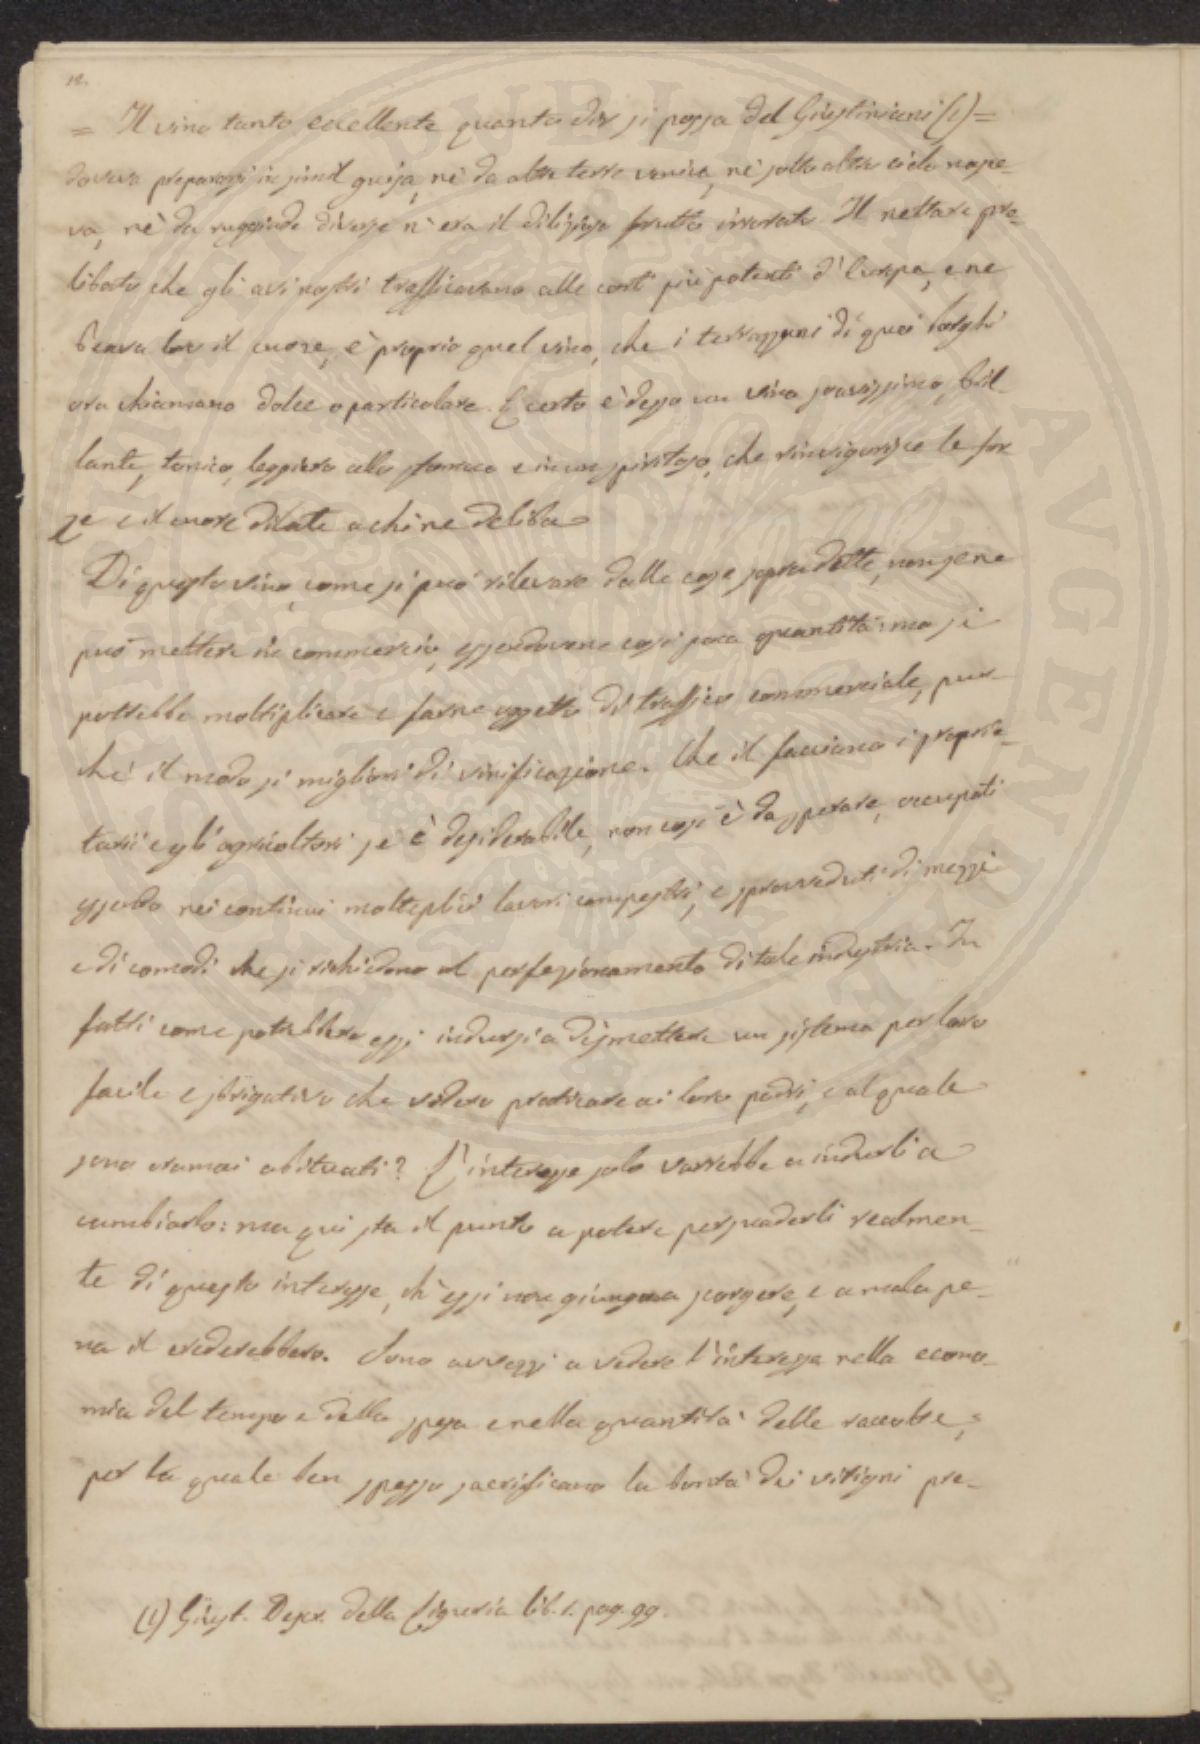 12.
= Il vino tanto eccellente quanto dir si possa del Giustiniani (1) =
doveva prepararsi in simil guisa, nè da altre terre veniva, nè sotto altro cielo nasce-
va, nè da ruggiade diverse n'era il dilizioso frutto irrorato. Il nettare pre-
libato che gli avi nostri trafficavano alle corti più potenti d'Europa, e ne
beava loro il cuore, è proprio quel vino, che i terrazzani di quei borghi
ora chiamano dolce o particolare. E certo è desso un vino soavissimo, bril-
lante, tonico, leggiero allo stomaco e in un spiritoso, che rinvigorisce le for
ze e il cuore dilata a chi ne deliba.
Di questo vino, come si può rilevare dalle cose sopradette, non se ne
può mettere in commercio, essendovene così poca quantità: ma si
potrebbe moltiplicare e farne oggetto di traffico commerciale, pur-
chè il modo si migliori di vinificazione. Che il facciano i proprie-
tarii e gli agricoltori se è desiderabile, non così è da sperare, occupati
essendo nei continui molteplici lavori campestri, e sprovveduti di mezzi
e di comodi che si richiedono al perfezionamento di tale industria. In
fatti come potrebbero essi indursi a dismettere un sistema per loro
facile e sbrigativo che videro praticare ai loro padri, e al quale
sono oramai abituati? L'interesse solo varrebbe a indurli a
cambiarlo: ma qui sta il punto a potere persuaderli realmen-
te di questo interesse, ch'essi non giungono a scorgere, e a mala pe-
na il crederebbero. Sono avvezzi a vedere l'interesse nella econo-
mia del tempo e della spesa e nella quantità delle raccolte,
per la quale ben spesso sacrificano la bontà dei vitigni pre-
(1) Giust. Descr. della Liguria lib. 1. pag. 99.